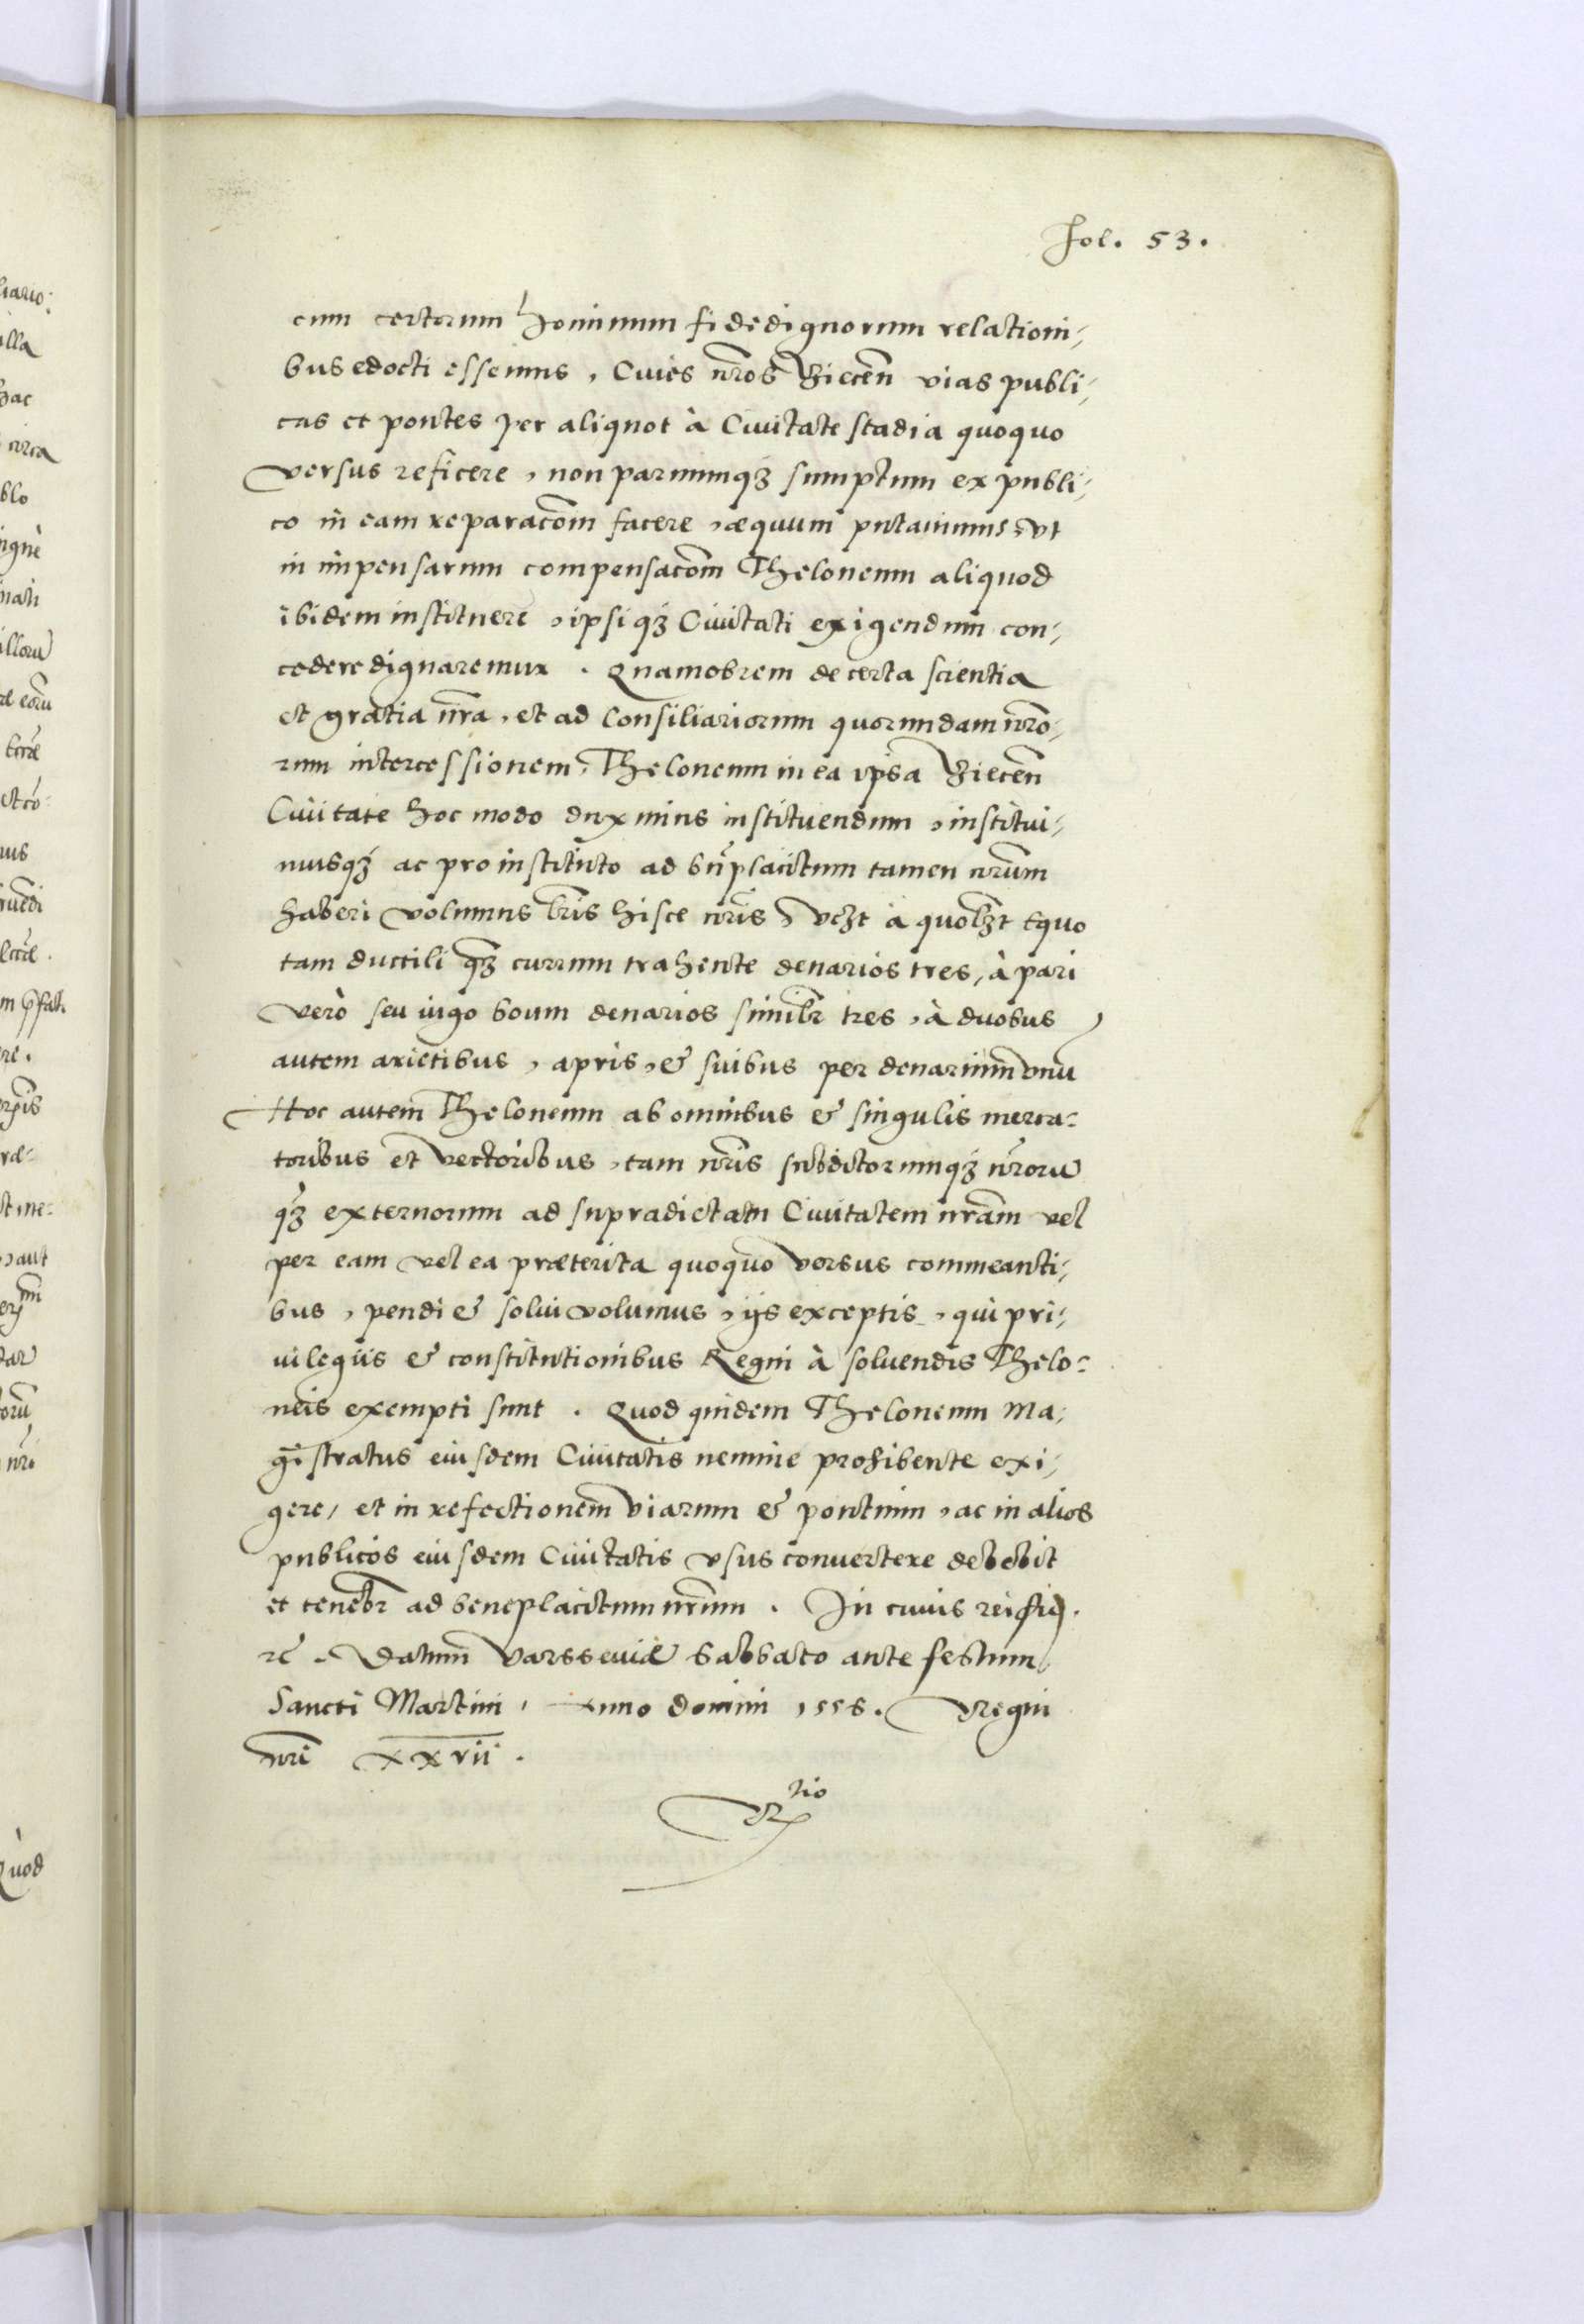 fol. 53.
cum certorum hominum fidedignorum relationi¬
bus edocti essemus, Ciuies nr̃os Biecen̄ vias publi¬
cas et pontes per aliquot à Ciuitate stadia quoquo
versus reficere, non paruumqȝ sumptum ex publi¬
co in eam reparacõm facere, æquum putauimus, vt
in impensarum compensacõm Theloneum aliquod
ibidem instituere, ipsiqȝ Ciuitati exigendum con¬
cedere dignaremur. Quamobrem de certa scientia
et gratia nr̃a, et ad Consiliariorum quorundam nr̃o¬
rum intercessionem, Theloneum in ea ipsa Biecen̄
Ciuitate hoc modo duximus instituendum, institui¬
musqȝ ac pro instituto ad bn̄placitum tamen nr̃um
haberi volumus lr̃is hisce nr̃is, vcȝt à quolȝt Equo
tam ductili qȝ currum trahente denarios tres, à pari
verò seu iugo boum denarios similr̄ tres, à duobus
autem arietibus, apris, & suibus per denarium vnū
Hoc autem Theloneum ab omnibus & singulis merca=
toribus et vectoribus, tam nr̃is subditorumqȝ nr̃orū
qȝ externorum ad supradictam Ciuitatem nr̃am vel
per eam vel ea præterita quoquo versus commeanti¬
bus, pendi & solui volumus, ijs exceptis, qui pri¬
uilegiis & constitutionibus Regni à soluendis Thelo=
neis exempti sunt. Quod quidem Theloneum Ma¬
gistratus eiusdem Ciuitatis nemine prohibente exi¬
gere, et in refectionem viarum & pontium, ac in alios
publicos eiusdem Ciuitatis vsus conuertere debebit
et tenebr̄ ad beneplacitum nr̃um. In cuius rei fid.
rē. Datum Varsseuiæ Sabbato ante festum
Sancti Martini, Anno domini 1556. Regni
nr̃i xxvii.